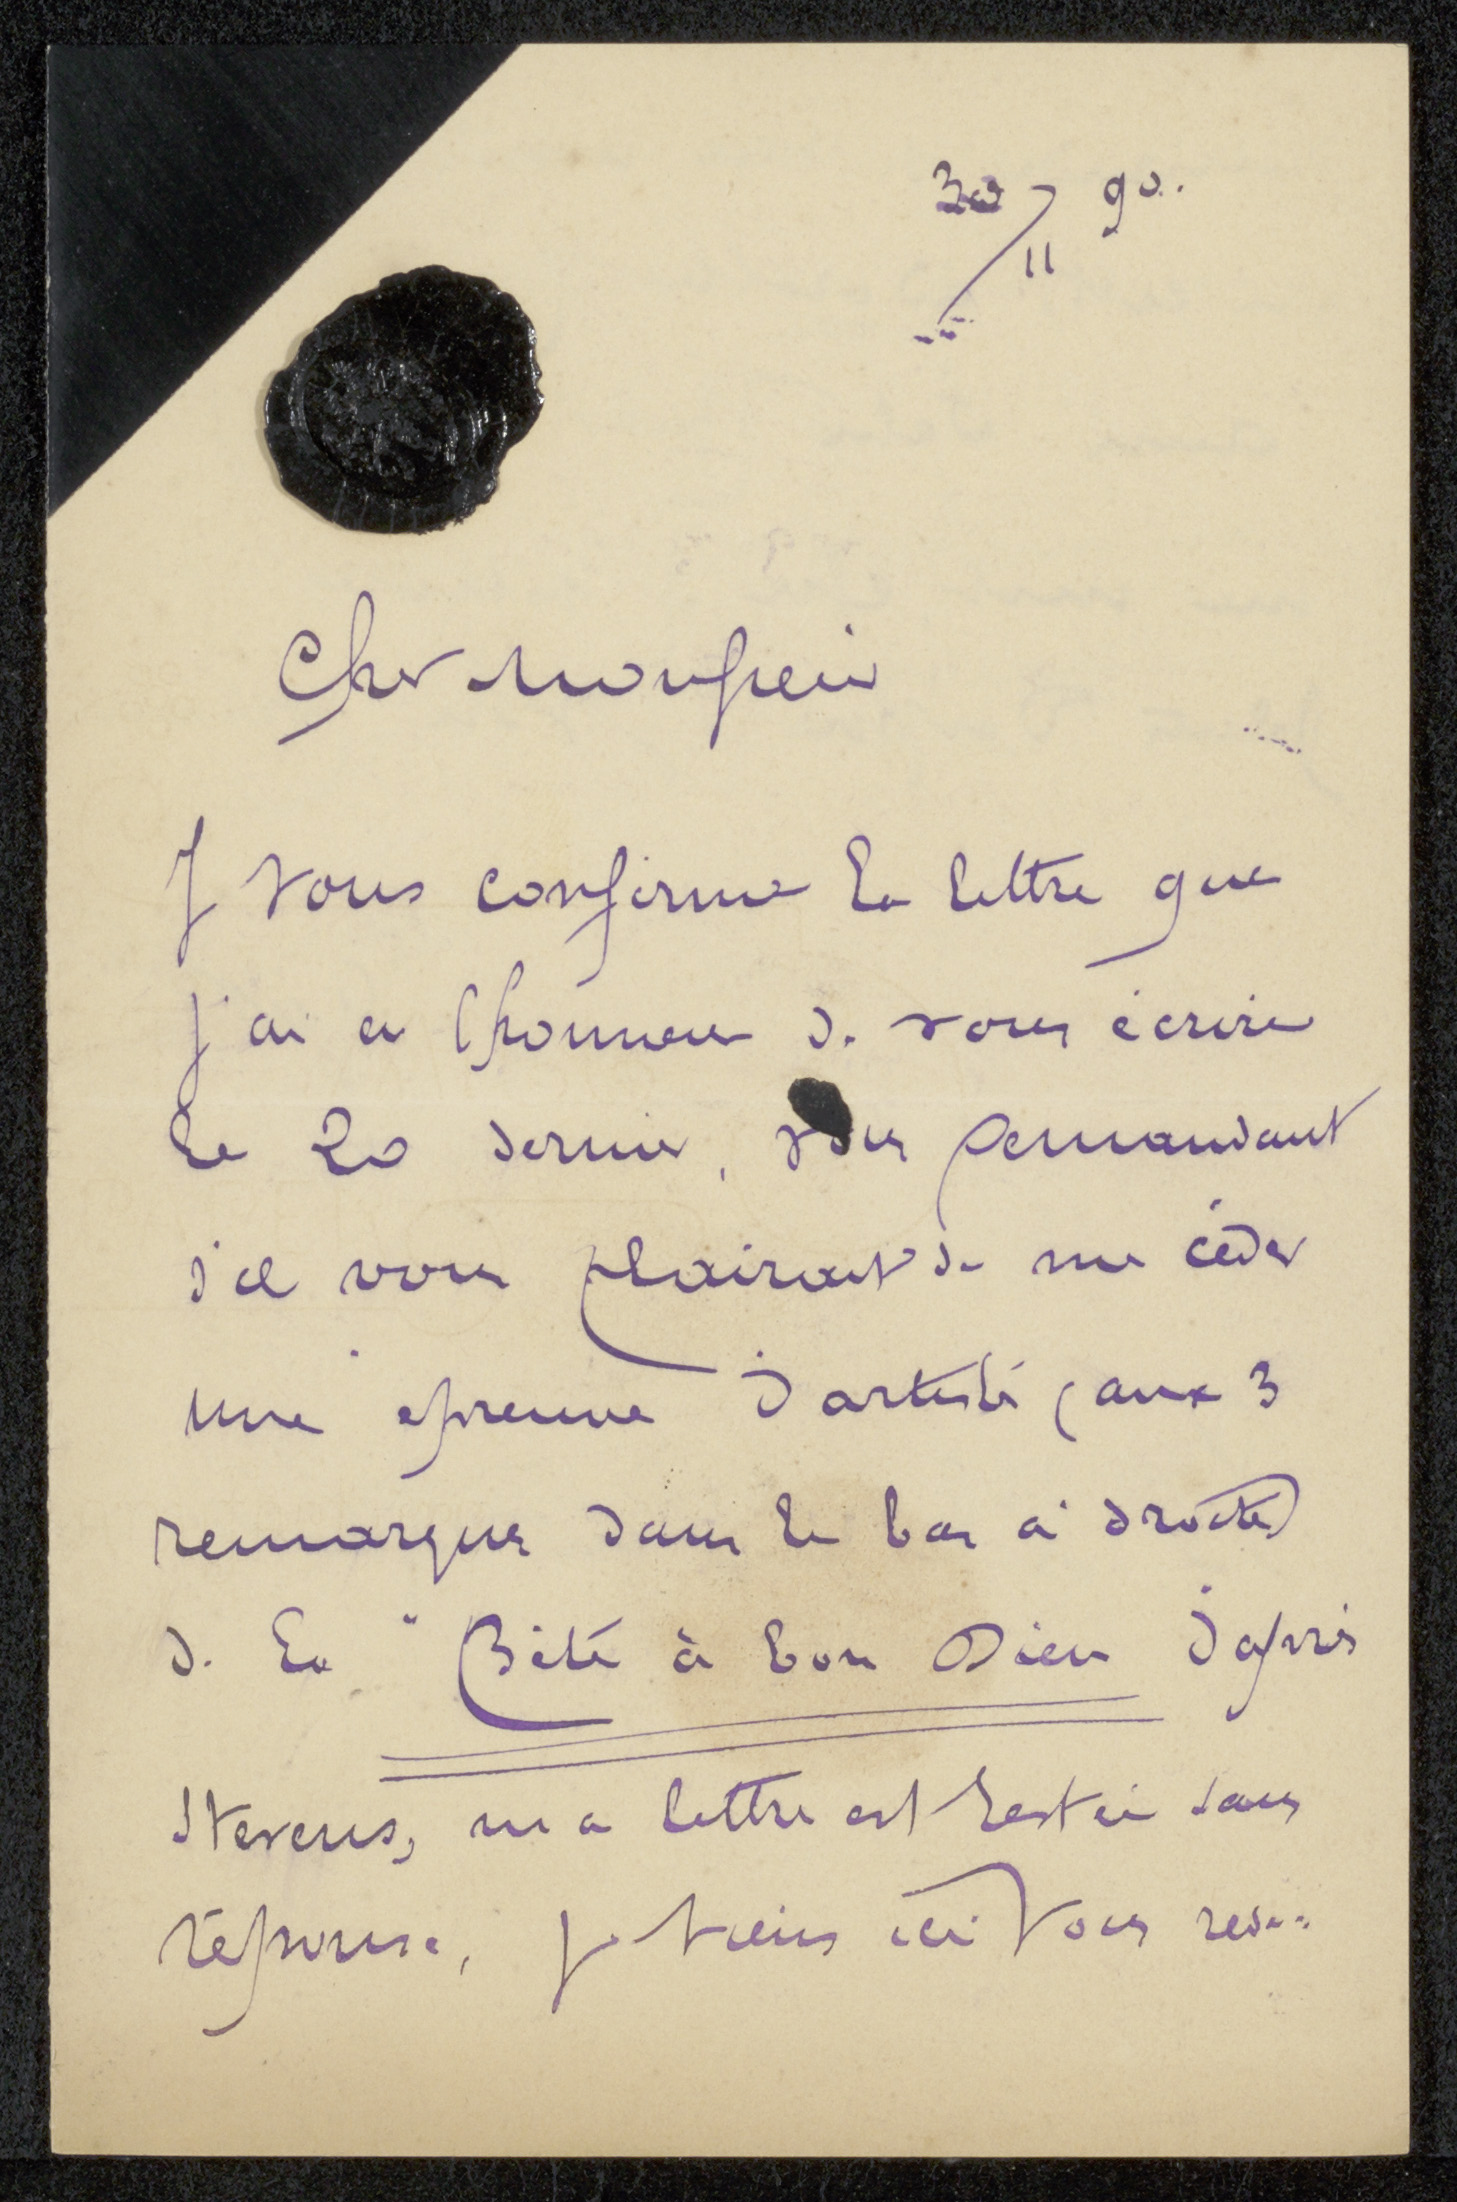 30/11 90.
Cher Monsieur
Je vous confirme la lettre que
j'ai eu l'honneur de vous écrire
le 20 dernier, vous demandant
s'il vous plairait de me céder
une épreuve d'artiste (aux 3
remarques dans le bas à droite)
de la "Bête à bon Dieu d'après
Stevens, ma lettre est restée sans
réponse, je viens ici vous